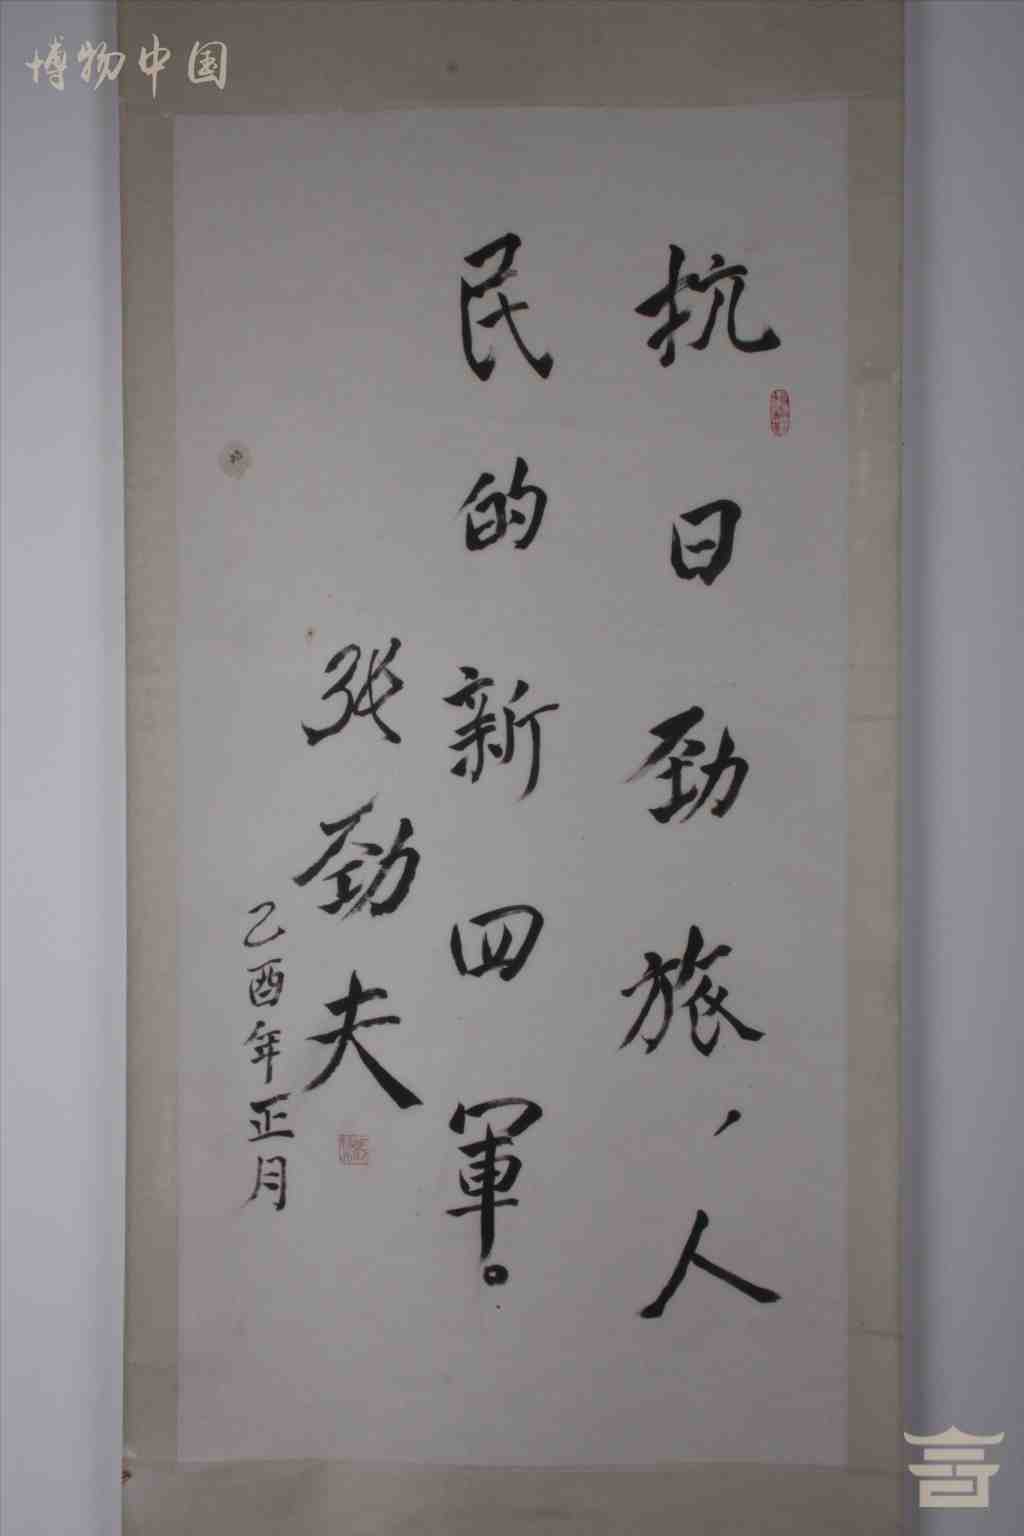 博物中国
抗日劲旅，人
民的新四軍。
张劲夫
乙酉年正月